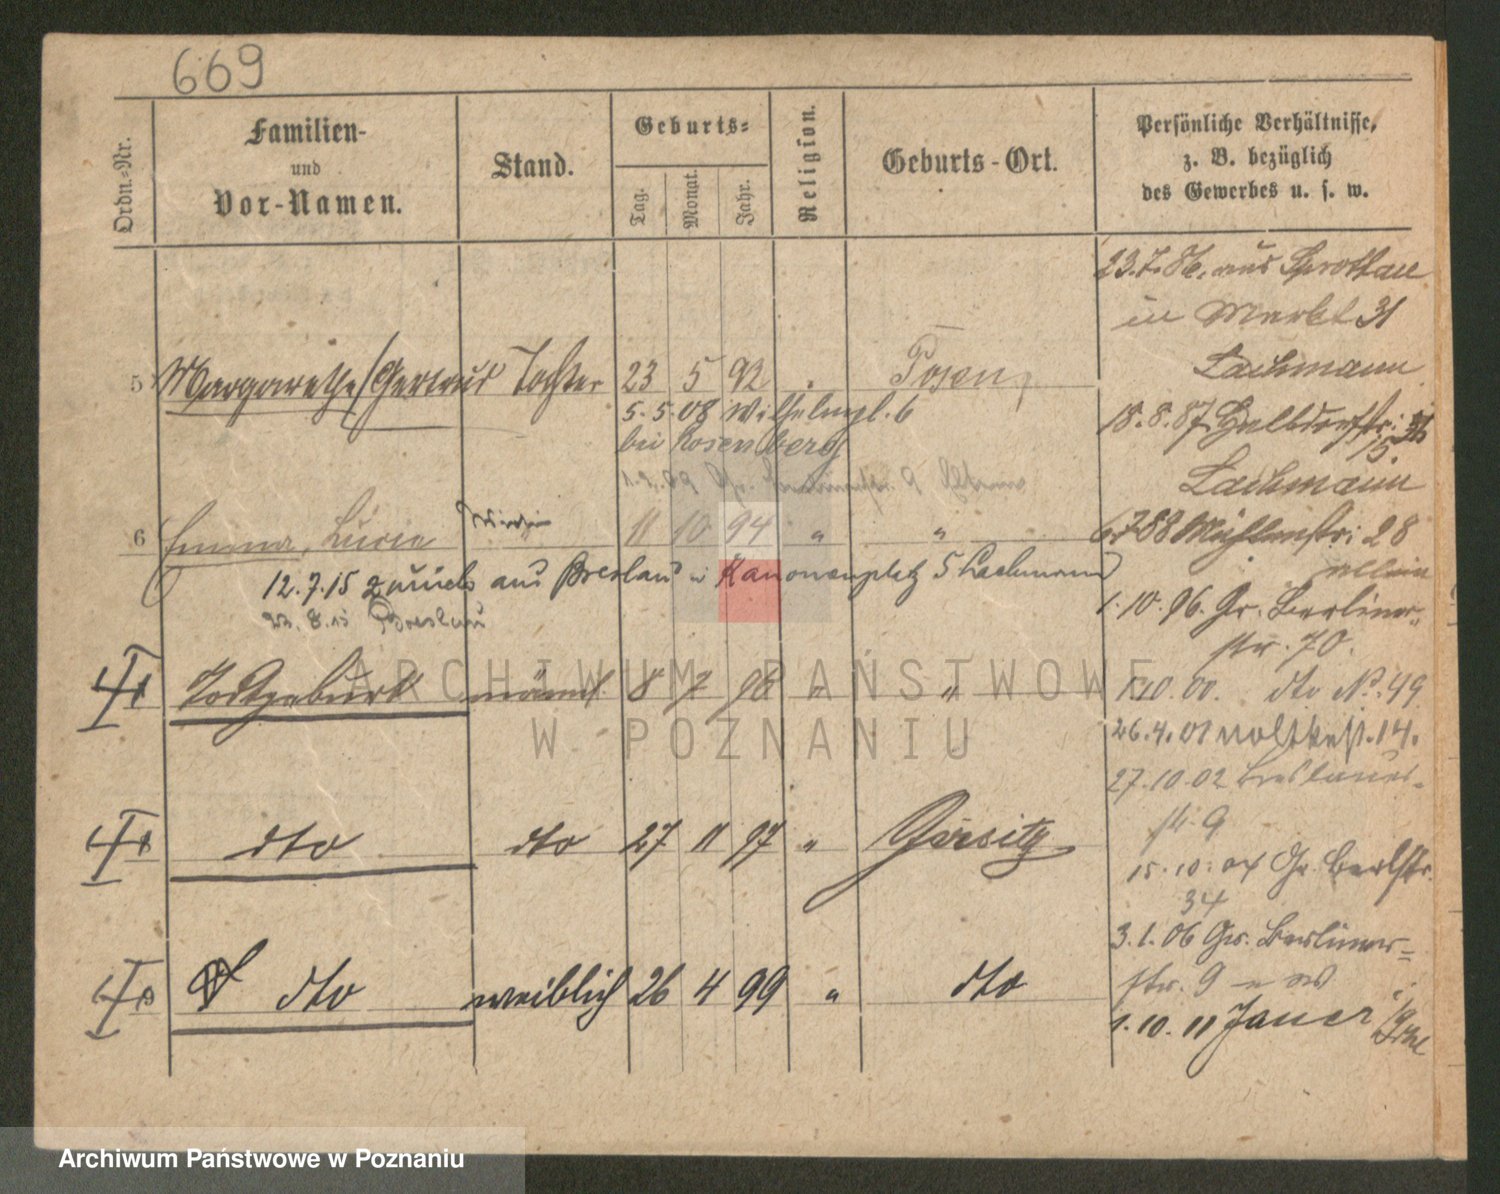 669
Ordn.-Nr.
Familien-
und
Vor-Namen.
Stand.
Geburts-
Tag.
Monat.
Jahr.
Religion.
Geburts-Ort.
Persönliche Verhältnisse,
z. B. bezüglich
des Gewerbes u. s. w.
23.7.86. aus Sprottau
in Markt 31
Lachmann
5 Margarethe/Gertrud Tochter 23 5 92 " Posen
5.5.08 Wilhelmpl. 6
bei Rosenberg
18.8.87 Halbdorfstr. 31
15.
Lachmann
6 Emma, Lucie 11 10 94 " "
88 Mühlenstr. 28
allein
12.7.15 zurück aus Breslau in Kanonenplatz 5 Lachmann
23.8.15 Breslau
1.10.96. Gr. Berliner-
str. 70.
4 Todtgeburt männl. 8 7 96 " "
1.10.00. dto No. 49
26.4.01 Moltkest. 14.
27.10.02 Breslauer-
str. 9
4 dto dto 27 11 97 " Gursitz
15.10.04 Gr. Berlstr.
34
3.1.06 Gr. Berliner-
str. 9
4 dto weiblich 26 4 99 " dto
1.10.11 Jauer
ARCHIWUM PAŃSTWOWE
W POZNANIU
Archiwum Państwowe w Poznaniu